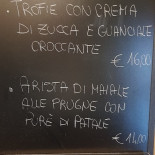 • TROFIE CON CREMA
DI ZUCCA E GUANCIALE
CROCCANTE
€ 16,00
• ARISTA DI MAIALE
ALLE PRUGNE CON
PURÈ DI PATATE
€ 14,00